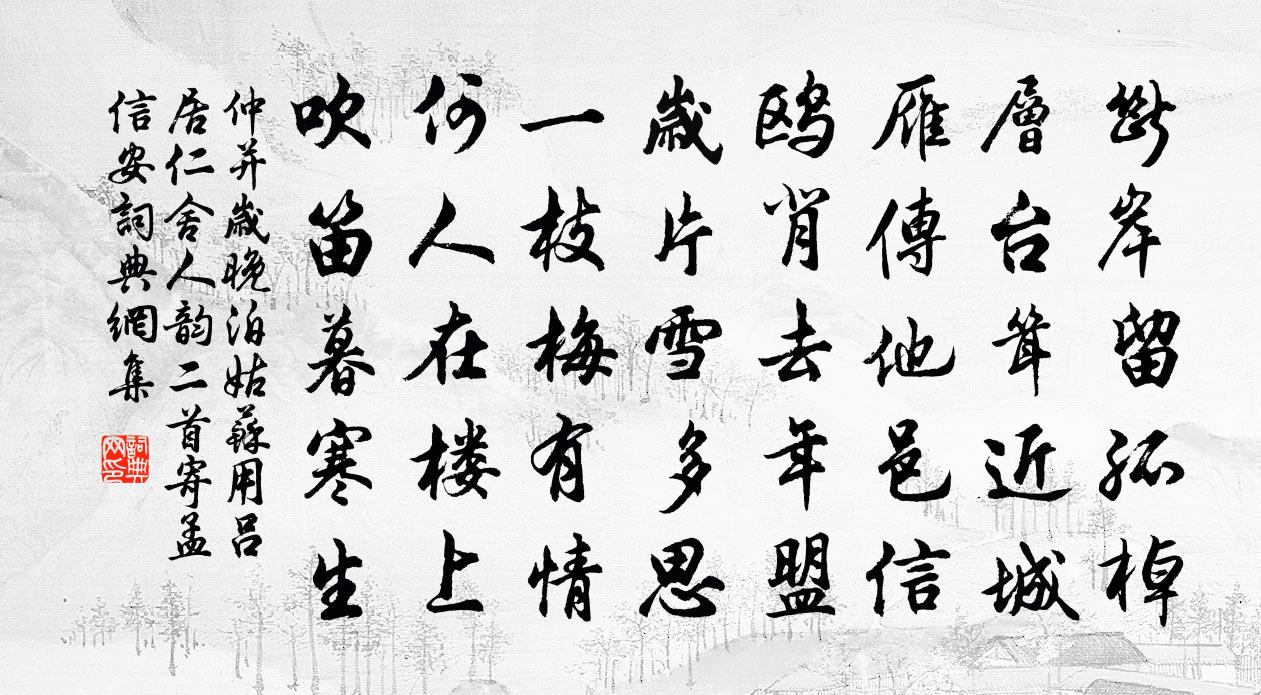 斷岸留孤棹
層台耸近城
雁傳他邑信
鸥肯去年盟
歲片雪多思
一枝梅有情
何人在楼上
吹笛暮寒生
仲并歲晚泊姑蘇用吕
居仁舍人韵二首寄孟
信安詞典網集
詞典网印